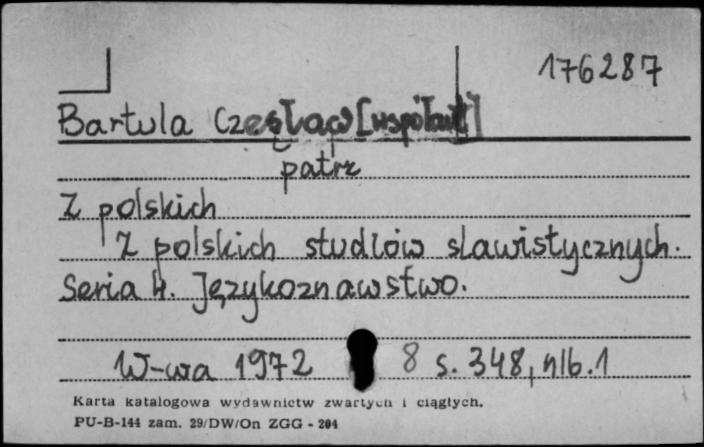 176287
Bartula Czesław [współaut]
patrz
Z polskich
Z polskich studiów slawistycznych.
Seria 4. Językoznawstwo.
W-wa 1972 8 s. 348, nlb. 1
Karta katalogowa wydawnictw zwartych i ciągłych.
PU-B-144 zam. 29/DW/On ZGG - 204